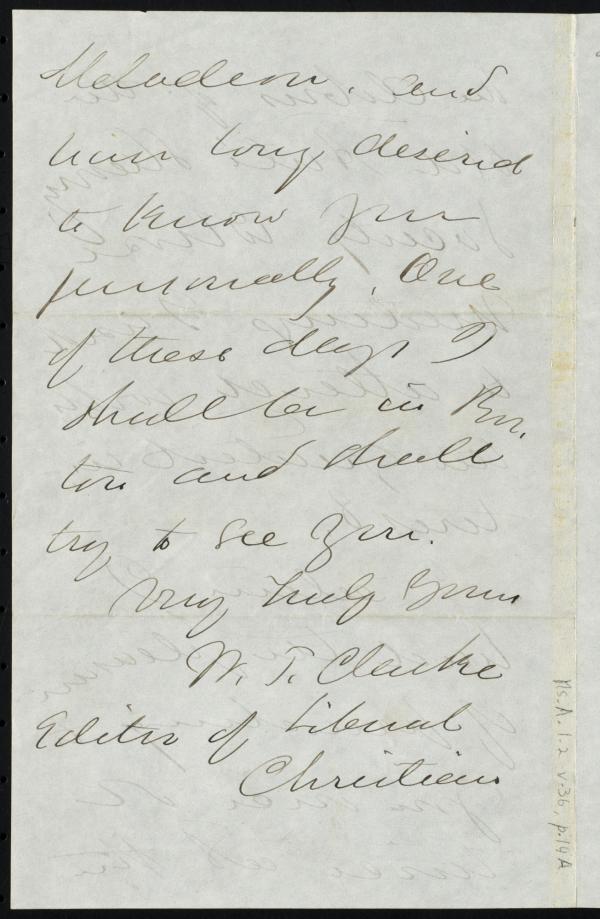 Melodeon. and
have long desired
to know you
personally. One
of these days I
shall be in Bos-
ton and shall
try to see you.
Very truly yours
W. T. Clarke
Editor of Liberal
Christian
Ms.A.1.2 v.36, p.14A